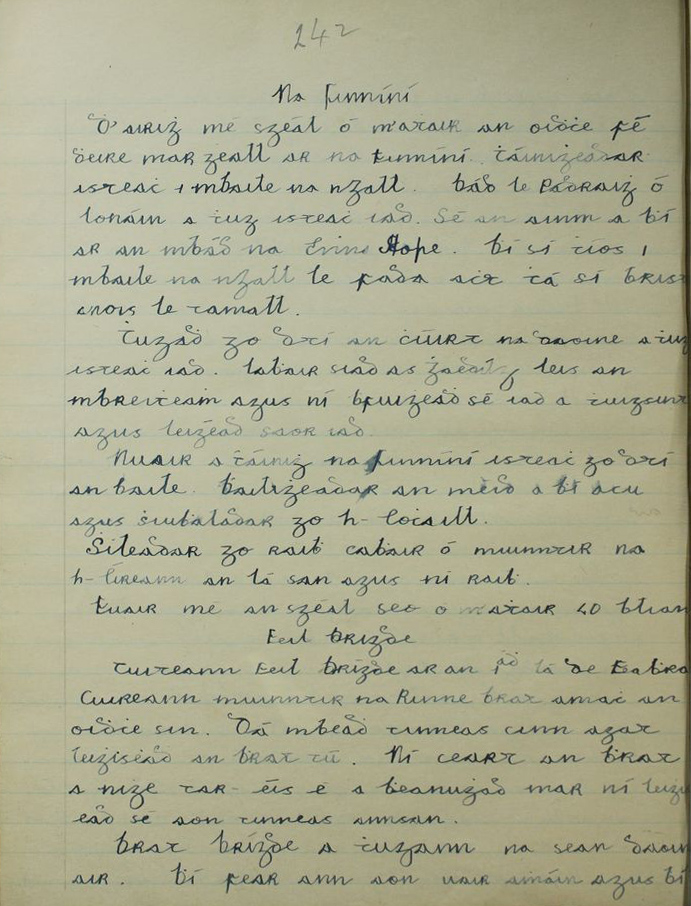 242
Na Finníní
D'airiġ mé széal ó m'aṫair an oidċe fé
ḋeire mar ġeall ar na Finníní. Ṫáinigeadar
isteaċ i mbaile na nGall. Bád le Pádraig ó
Lonáin a ṫug isteaċ iad. Sé an ainm a bí
ar an mbád na Erins Hope. Bí sí tíos i
mbaile na nGall le fada aċt tá sí brist
anois le tamall.
Tugad go dtí an ċúirt na daoine a ṫug
isteaċ iad. Labair siad as Gaedilg leis an
mbreiteaṁ agus ní bfuigead sé iad a ṫuigsint
agus leigead saor iad.
Nuair a ṫáinig na Finníní isteaċ go dtí
an baile. Bailigeadar an méid a bí acu
agus siubaladar go h-Eocaill.
Síleadar go raib cabair ó muinntir na
h-Éireann an lá san agus ní raib.
Fuair mé an széal seo ó m'aṫair 40 blian
Feil Brigde
Tuiteann Feil Brígde ar an 1ad lá de Feabra
Cuireann muinntir na Rinne brat amaċ an
oidċe sin. Dá mbead tinneas cinn agat
leigisead an brat tú. Ní ceart an brat
a nige tar-éis é a beannugad mar ní leigi
ead sé aon tinneas annsan.
Brat Brígde a ṫugann na sean daoin
air. Bí fear ann aon uair aṁáin agus bí